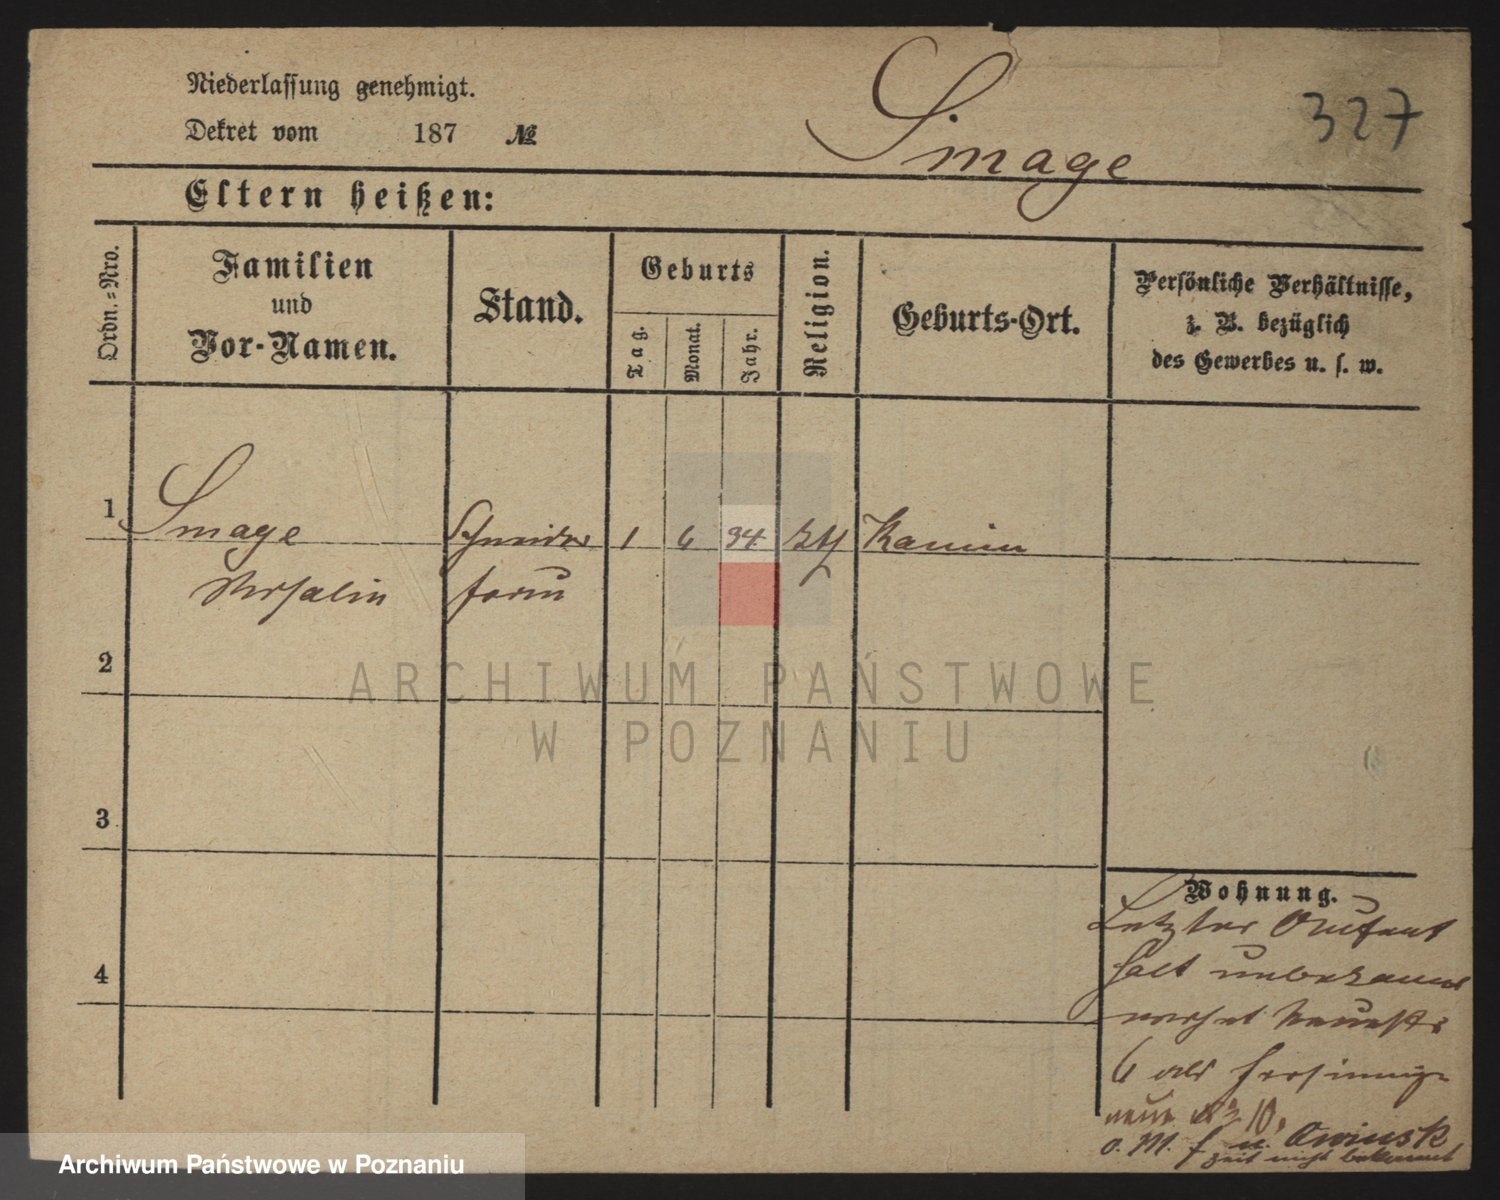 Niederlassung genehmigt.
Dekret vom 187 №
Smage
327
Eltern heißen:
Ordn.=Nro.
Familien
und
Vor-Namen.
Stand.
Geburts
Tag.
Monat.
Jahr.
Religion.
Geburts-Ort.
Persönliche Verhältnisse,
z. B. bezüglich
des Gewerbes u. s. w.
1
Smage Schneider 1 6 34
2
3
4
Wohnung.
Letzter Aufent
halt unbekannt
wohnt
6 als
neue № 10.
o. M. f. n. Owinsk
zeit nicht bekannt
ARCHIWUM PAŃSTWOWE
W POZNANIU
Archiwum Państwowe w Poznaniu